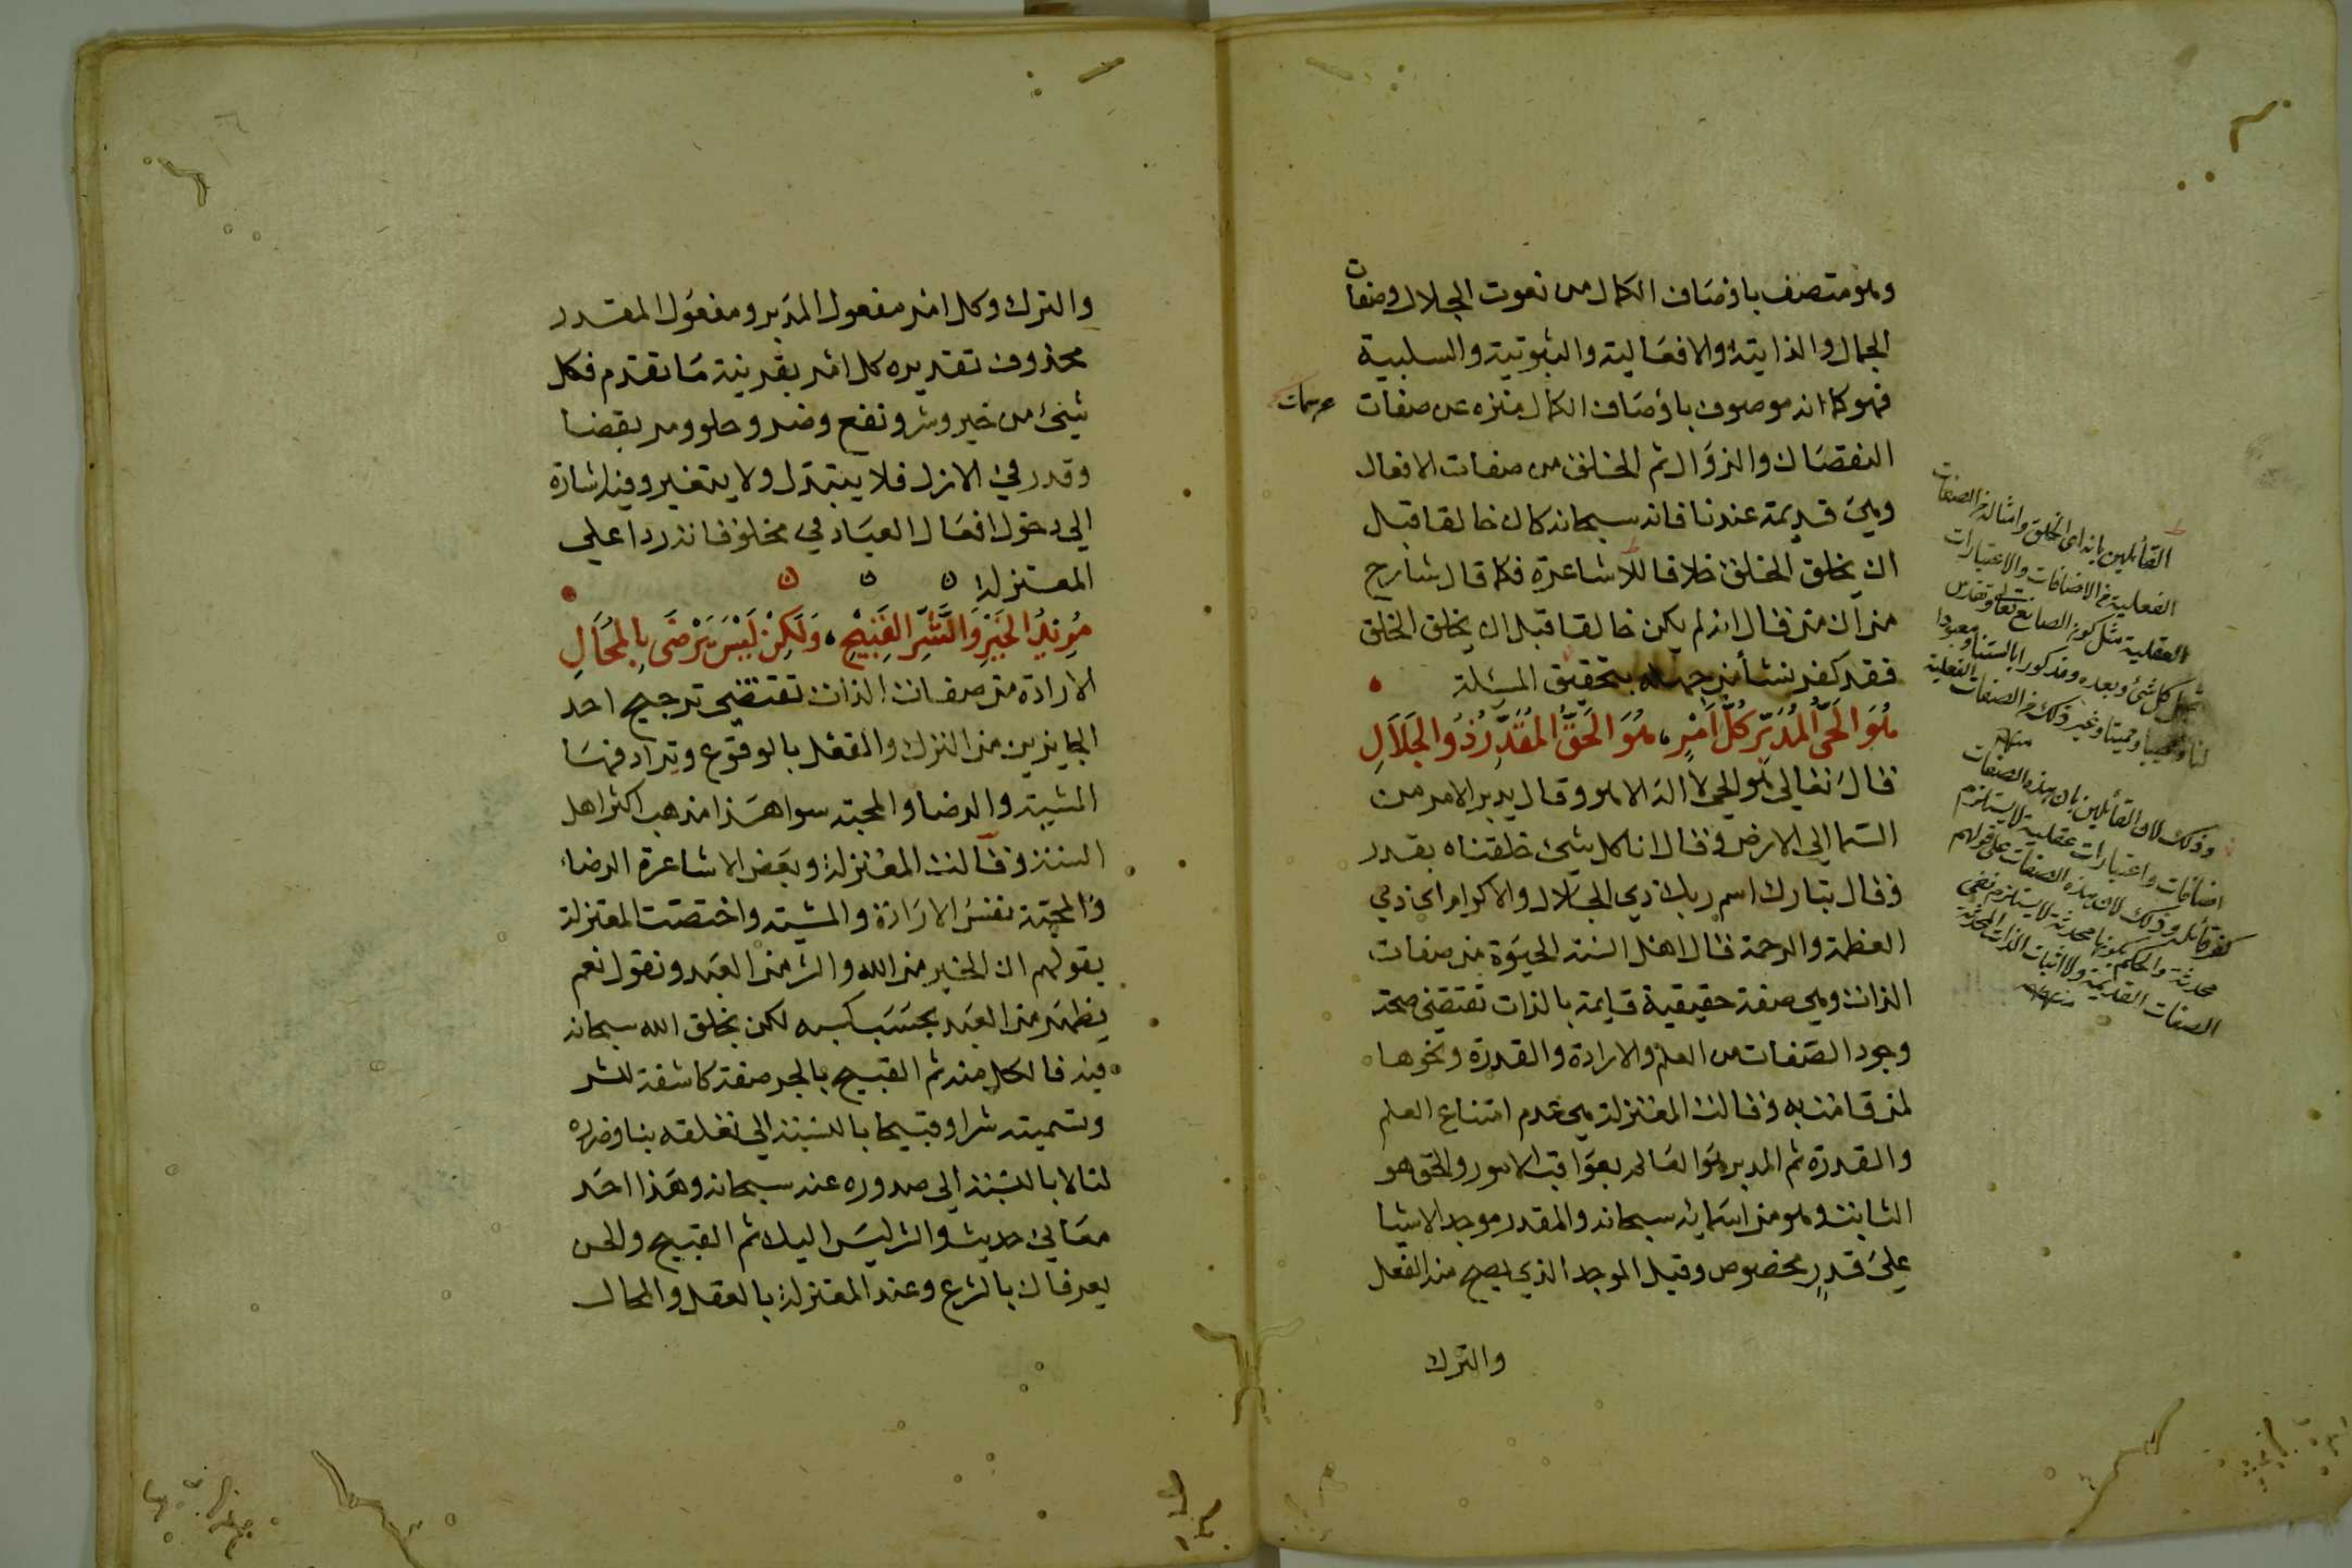 وهو متصف باوصاف الكمال من نعوت الجلال وصفات
الجمال والذاتية والافعالية والثبوتية والسلبية
فهو كما انه موصوف باوصاف الكمال منزه عن صفات
النقصان والزوال ثم الخلق من صفات الافعال
وهي قديمة عندنا فانه سبحانه كان خالقا قبل
ان يخلق الخلق خلافا للاشاعرة فكما قال شارح
من ان من قال انه لم يكن خالقا قبل ان يخلق الخلق
فقد كفر نشأ من جهله بتحقيق المسئلة
هُوَ الحَيُّ المُدَبِّرُ كُلَّ اَمْرٍ هُوَ الحَقُّ المُقَدِّرُ ذُو الجَلَالِ
قال تعالى هو الحي لا اله الا هو وقال يدبر الامر من
السما الى الارض وقال انا كل شئ خلقناه بقدر
وقال تبارك اسم ربك ذي الجلال والاكرام اي ذي
العظمة والرحمة قال اهل السنة الحيوة من صفات
الذات وهي صفة حقيقية قايمة بالذات تقتضي صحة
وجود الصفات من العلم والارادة والقدرة ونحوها
لمن قامت به وقالت المعتزلة هي عدم امتناع العلم
والقدرة ثم المدبر هو العالم بعواقب الامور والحق هو
الثابت وهو من اسمائه سبحانه والمقدر موجد الاشيا
على قدرٍ مخصوص وقيل الموجد الذي يصح منه الفعل
والترك
القائلين بانه اى الخلق وامثاله من الصفات
الفعلية من الاضافات والاعتبارات
العقلية مثل كون الصانع تعالى وتقدس
قبل كل شئ وبعده ومذكورا بالسنتنا ومعبودا
لنا ومحييا ومميتا وغير ذلك من الصفات الفعلية
منه
وذلك لان القائلين بان هذه الصفات
اضافات واعتبارات عقلية لا يستلزم
كفر قائله وذلك لان هذه الصفات على قولهم
محدثة والحكم بكونها محدثة لا يستلزم نفى
الصفات القديمة ولا اثبات الذات المحدثة
منه
والترك وكل امر مفعول المدبر ومفعول المقدر
محذوف تقديره كل امر بقرينة ما تقدم فكل
شيئ من خير وشر ونفع وضر وحلو ومر بقضا
وقدر في الازل فلا يتبدل ولا يتغير وفيه اشارة
الي دخول افعال العباد في مخلوقاته ردا علي
المعتزلة
مُرِيدُ الخَيْرِ وَالشَّرِّ القَبِيْحِ وَلَكِنْ لَيْسَ يَرْضَى بِالمُحَالِ
الارادة من صفات الذات تقتضي ترجيح احد
الجايزين من الترك والفعل بالوقوع ويرادفها
المشية والرضا والمحبة سوا هذا مذهب اكثر اهل
السنة وقالت المعتزلة وبعض الاشاعرة الرضاء
والمحبة نفس الارادة والمشية واختصت المعتزلة
بقولهم ان الخير من الله والشر من العبد ونقول نعم
يظهر من العبد بحسب كسبه لكن بخلق الله سبحانه
فيه فالكل منه ثم القبيح بالجر صفة كاشفة للشر
وتسميته شرا وقبيحا بالنسبة الي تعلقه بنا وضرره
لنا لا بالنسبة الي صدوره عنه سبحانه وهذا احد
معاني حديث والشر ليس اليك ثم القبيح والحسن
يعرفان بالشرع وعند المعتزلة بالعقل والمحال